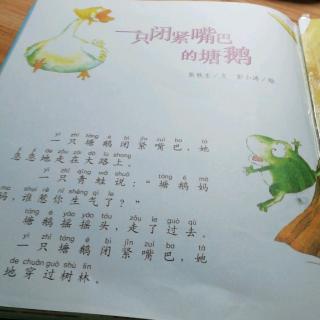 一只闭紧嘴巴
的塘鹅
yì zhī táng é bì jǐn zuǐ ba tā
一只塘鹅闭紧嘴巴,她
de zǒu zài dà lù shang
地走在大路上。
yì zhī qīng wā shuō
一只青蛙说:“塘鹅妈
shuí rě nǐ shēng qì le
妈,谁惹你生气了?”
táng é yáo yáo tóu zǒu le guò qù
塘鹅摇摇头,走了过去。
yì zhī táng é bì jǐn zuǐ ba tā
一只塘鹅闭紧嘴巴,她
de chuān guò shù lín
地穿过树林。